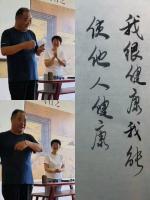 我很健康我能
使他人健康